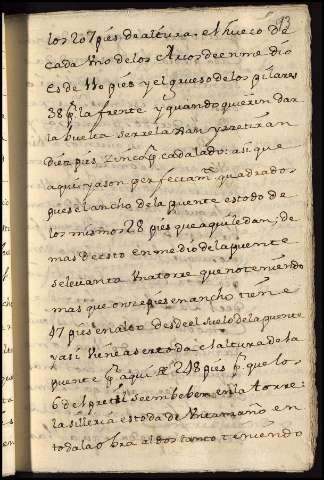 93
los 207 pies de altura. el hueco de
cada uno de los Arcos de enmedio
es de 110 pies y el grueso de los pilares
38 pᵉ la frente y quando quieren dar
la buelta se relaxan y se retiran
diez pies, zinco pᵉ cada lado: asi que
aqui ya son perfectamᵗᵉ quadrados
pues el ancho de la puente es todo de
los mismos 28 pies que aqui le dan; de
mas de esto en medio de la puente
se levanta una torre que no teniendo
mas que onze pies en ancho tiene
47 pies en alto desde el suelo de la puente
y asi viene a ser toda la altura de la
puente pᵉ aqui de 248 pies pᵉ que los
6 del pretil se embeben en la torre:
la silleria es toda de un tamaño en
toda la obra al dos tanto teniendo